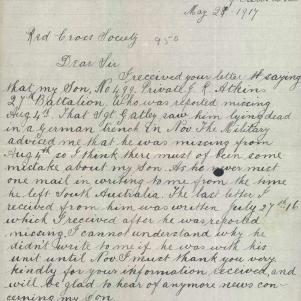 May 28 1917
Red Cross Society 950
Dear Sir
I received your letter saying
that my Son, No 499, Private J. R. Atkins
27th Battalion. Who was reported missing
Aug 4th. That Sgt Gatley saw him lying dead
in a German trench in Nov. The Military
adviced me that he was missing from
Aug 4th so I think there must of bein some
mistake about my Son. As he never misst
one mail in writing to me from the time
he left South Australia. The last letter I
received from him was written July 27th 16
which I received after he was reported
missing. I cannot understand why he
didn't write to me if he was with his
unit until Nov. I must thank you very
kindly for your information, received, and
will be glad to hear of anymore news con-
cerning my Son